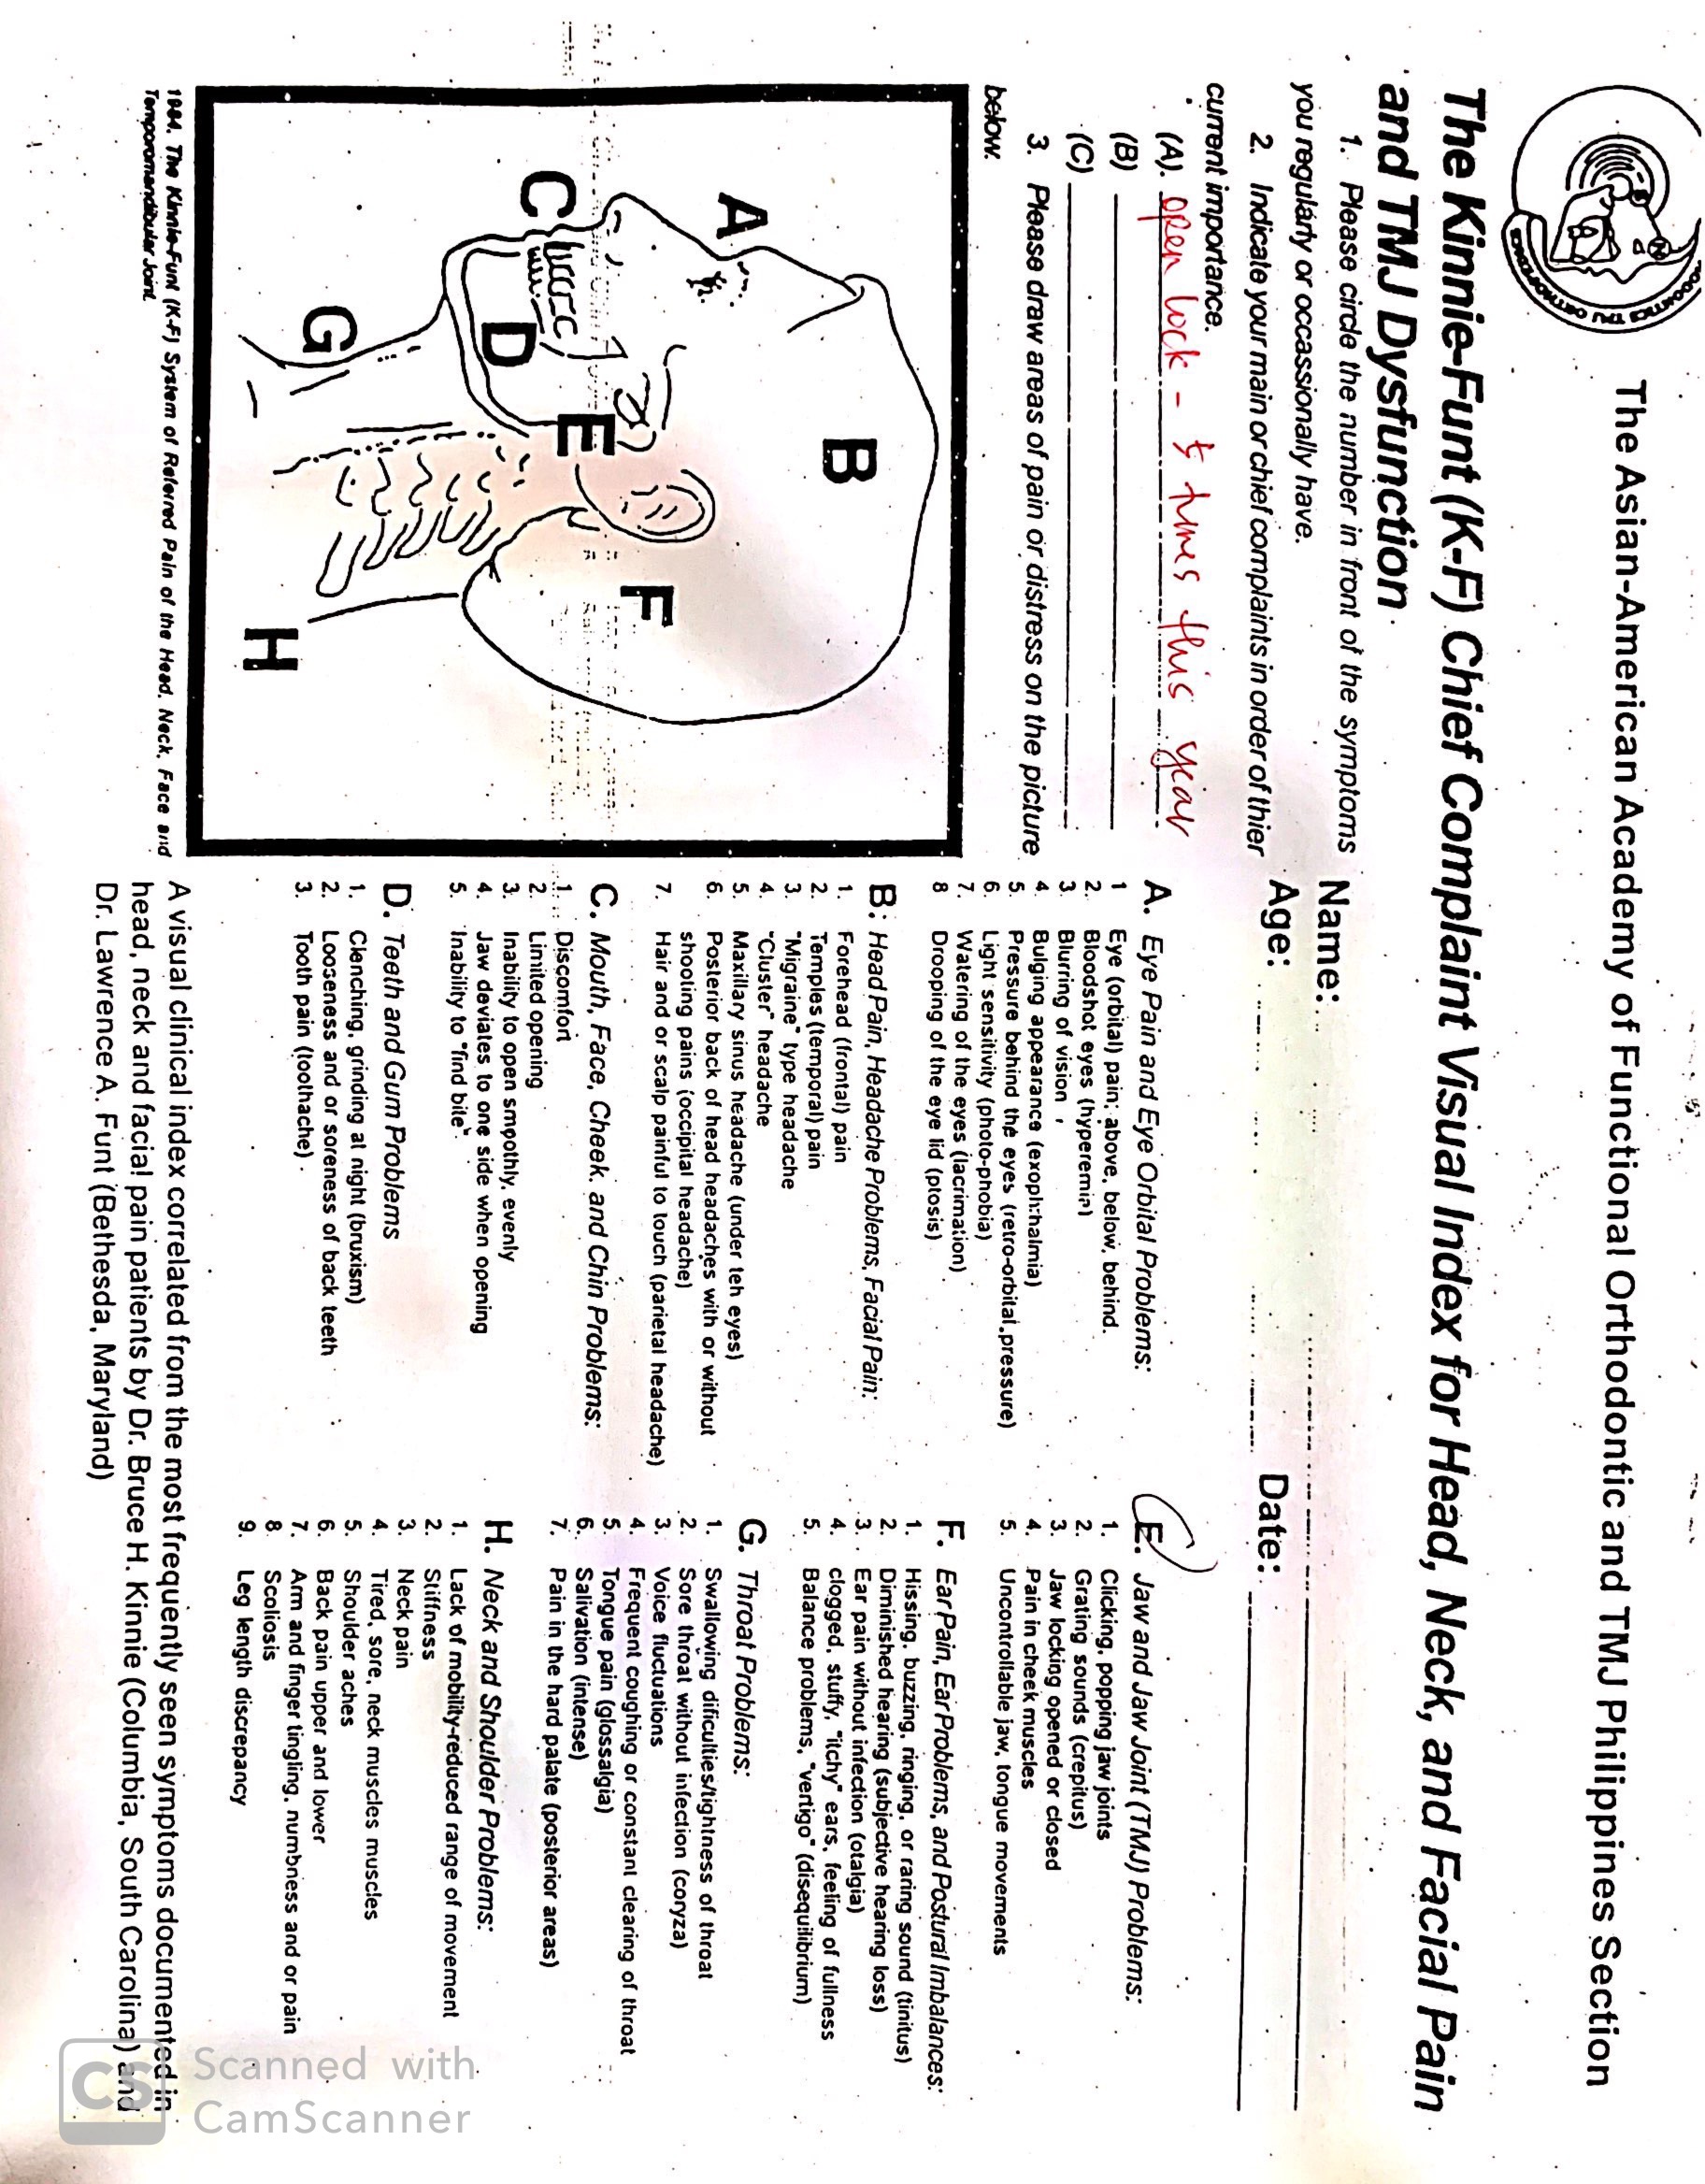 The Asian-American Academy of Functional Orthodontic and TMJ Philippines Section
The Kinnie-Funt (K-F) Chief Complaint Visual Index for Head, Neck, and Facial Pain
and TMJ Dysfunction
1. Please circle the number in front of the symptoms
you regularly or occassionally have.
2. Indicate your main or chief complaints in order of thier
current importance.
(A). open lock - times this year
(B)
(C)
3. Please draw areas of pain or distress on the picture
below.
A
B
C
D
E
F
G
H
1984. The Kinnie-Funt (K-F) System of Referred Pain of the Head, Neck, Face and
Temporomandibular Joint.
Name:
Age:
Date:
A. Eye Pain and Eye Orbital Problems:
1 Eye (orbital) pain; above, below, behind.
2. Bloodshot eyes (hyperemia)
3 Blurring of vision
4 Bulging appearance (exophthalmia)
5 Pressure behind the eyes (retro-orbital pressure)
6. Light sensitivity (photo-phobia)
7. Watering of the eyes (lacrimation)
8 Drooping of the eye lid (ptosis)
B: Head Pain, Headache Problems, Facial Pain:
1. Forehead (frontal) pain
2. Temples (temporal) pain
3 "Migraine" type headache
4. "Cluster" headache
5. Maxillary sinus headache (under teh eyes)
6. Posterior back of head headaches with or without
shooting pains (occipital headache)
7. Hair and or scalp painful to touch (parietal headache)
C. Mouth, Face, Cheek. and Chin Problems:
1. Discomfort
2. Limited opening
3. Inability to open smoothly, evenly
4. Jaw deviates to one side when opening
5. Inability to "find bite".
D. Teeth and Gum Problems
1. Clenching, grinding at night (bruxism)
2. Looseness and or soreness of back teeth
3. Tooth pain (toolhache)
E. Jaw and Jaw Joint (TMJ) Problems:
1. Clicking, popping jaw joints
2 Grating sounds (crepitus)
3. Jaw locking opened or closed
4. Pain in cheek muscles
5. Uncontrollable jaw, tongue movements
F. Ear Pain, Ear Problems, and Postural Imbalances:
1. Hissing, buzzing, ringing, or raring sound (tinitus)
2. Diminished hearing (subjective hearing loss)
3. Ear pain without infection (otalgia)
4. clogged, stuffy, "itchy" ears, feeling of fullness
5. Balance problems, "vertigo" (disequilibrium)
G. Throat Problems:
1. Swallowing dificulties/tightness of throat
2. Sore throat without infection (coryza)
3. Voice fluctuations
4. Frequent coughing or constant clearing of throat
5. Tongue pain (glossalgia)
6. Salivation (intense)
7. Pain in the hard palate (posterior areas)
H. Neck and Shoulder Problems:
1. Lack of mobility-reduced range of movement
2. Stiffness
3. Neck pain
4. Tired, sore, neck muscles muscles
5. Shoulder aches
6. Back pain upper and lower
7. Arm and finger tingling, numbness and or pain
8. Scoliosis
9. Leg length discrepancy
A visual clinical index correlated from the most frequently seen symptoms documented in
head, neck and facial pain patients by Dr. Bruce H. Kinnie (Columbia, South Carolina) and
Dr. Lawrence A. Funt (Bethesda, Maryland)
CS Scanned with
CamScanner